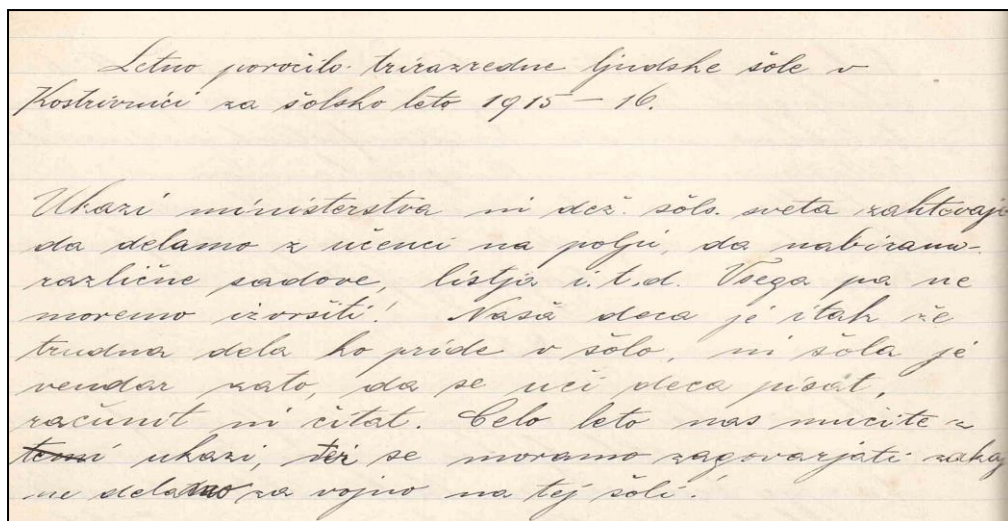 Letno poročilo trirazredne ljudske šole v
Kostrivnici za šolsko leto 1915 – 16.
Ukazi ministerstva ni dež. šols. sveta zahtevaj
da delamo z učenci na polju, da nabiramo
različne sadove, listja i.t.d. Vsega pa ne
moremo izvršiti! Naša deca je itak že
trudna dela ko pride v šolo, ni šola je
vendar zato, da se uči deca pisat,
računit ni čitat. Celo leto nas mučite z
temi ukazi, ter se moramo zagovarjati zakaj
ne delamo za vojno na tej šoli!